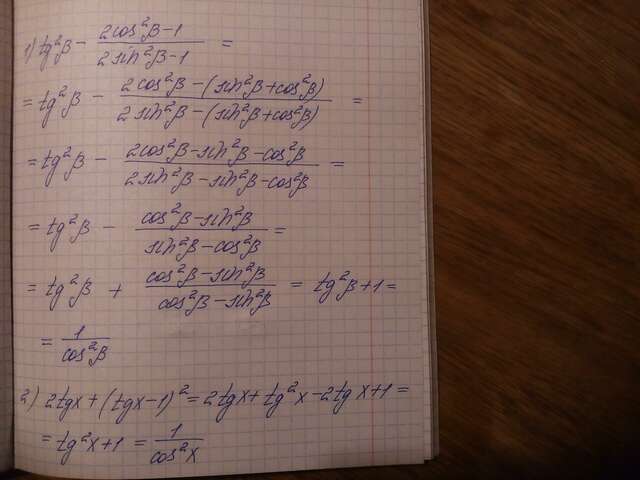 1) tg²β − (2cos²β−1)/(2sin²β−1) =
= tg²β − (2cos²β − (sin²β+cos²β))/(2sin²β − (sin²β+cos²β)) =
= tg²β − (2cos²β−sin²β−cos²β)/(2sin²β−sin²β−cos²β) =
= tg²β − (cos²β−sin²β)/(sin²β−cos²β) =
= tg²β + (cos²β−sin²β)/(cos²β−sin²β) = tg²β+1 =
= 1/cos²β
2) 2tgx + (tgx−1)² = 2tgx + tg²x − 2tgx + 1 =
= tg²x+1 = 1/cos²x